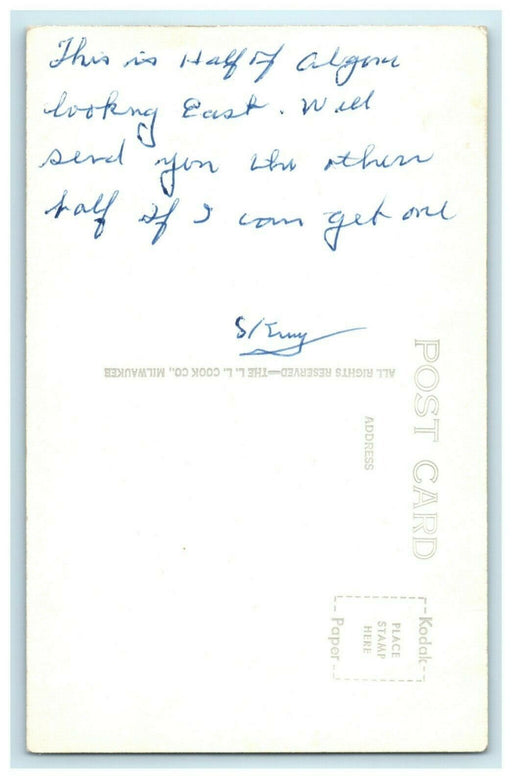 This is Half of Algona
looking East. Will
send you the other
half if I can get one
ALL RIGHTS RESERVED—THE L. L. COOK CO., MILWAUKEE
POST CARD
ADDRESS
Kodak
PLACE
STAMP
HERE
Paper